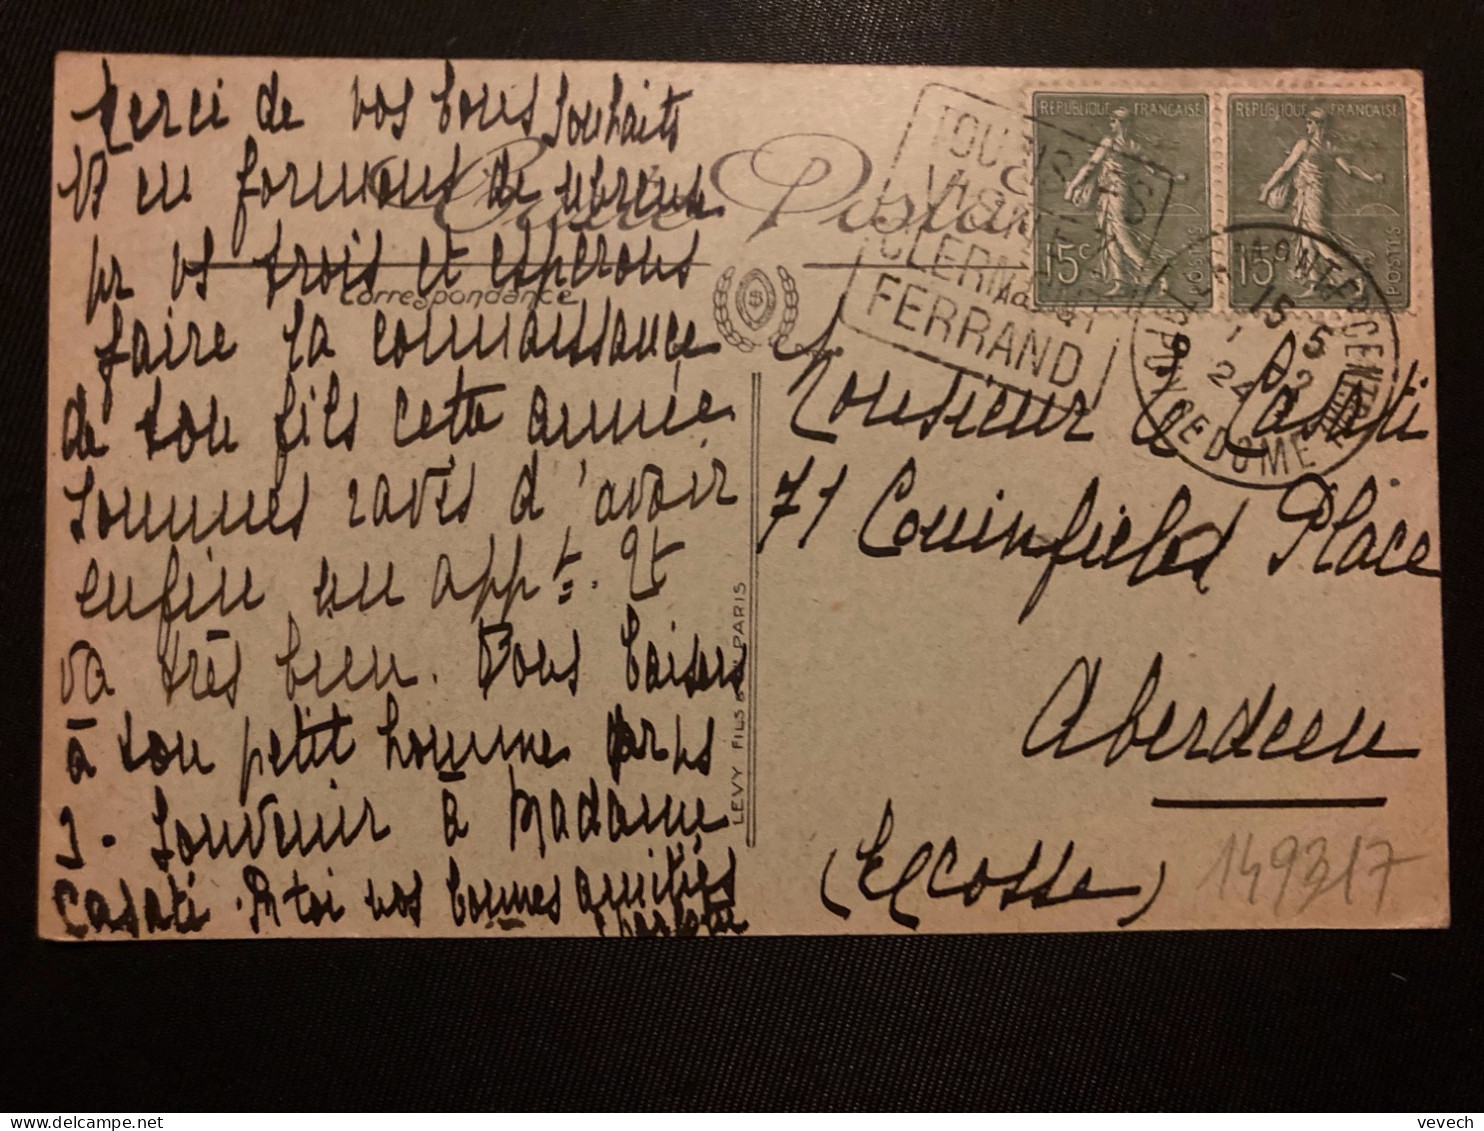 Merci de vos bons souhaits
en formons de nbreux
pr vs trois et espérons
faire la connaissance
de ton fils cette année
sommes ravis d'avoir
enfin un appt. Et
va très bien. Bons baisers
à ton petit homme
souvenir à Madame
Casati. toi nos bonnes amitiés
Carte Postale
Correspondance
LEVY FILS & PARIS
TOURISTES
VISITEZ
CLERMONT
FERRAND
REPUBLIQUE FRANÇAISE
15c
POSTES
REPUBLIQUE FRANÇAISE
15c
POSTES
PUY-DE-DOME
Monsieur Casati
71 Couinfield Place
Aberdeen
(Ecosse)
149317
vevech